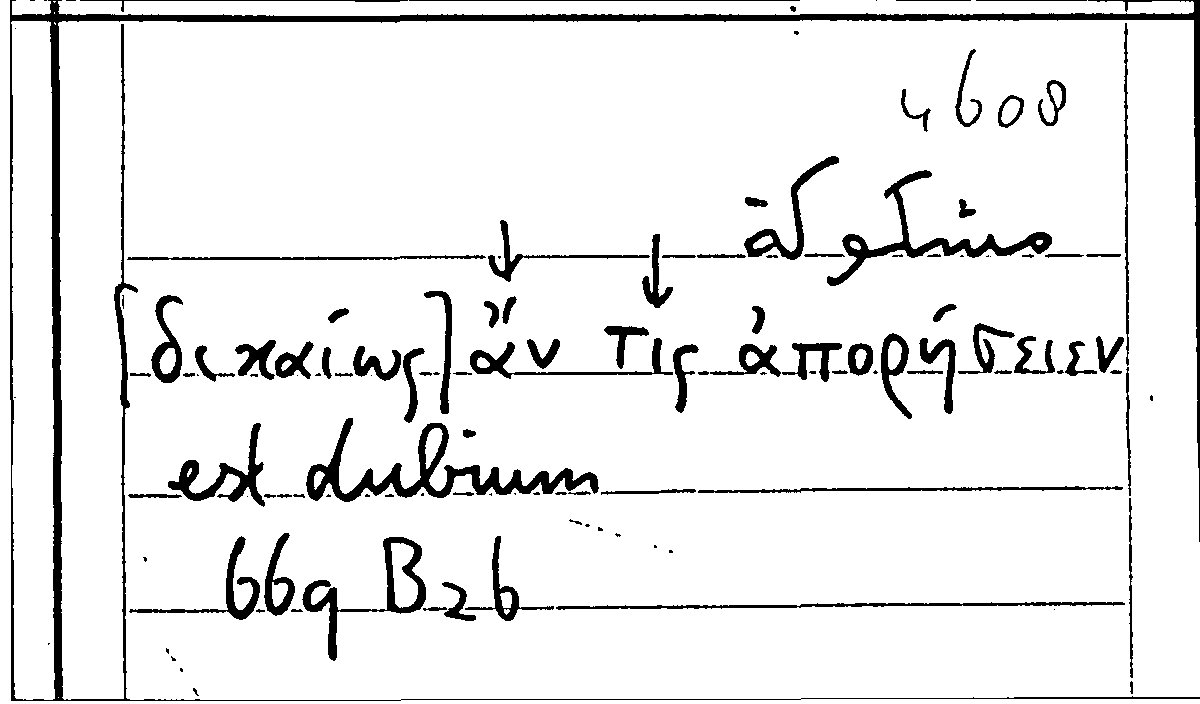 4608
[δικαίως] ἄν τις ἀπορήσειεν
est dubium
669 B26